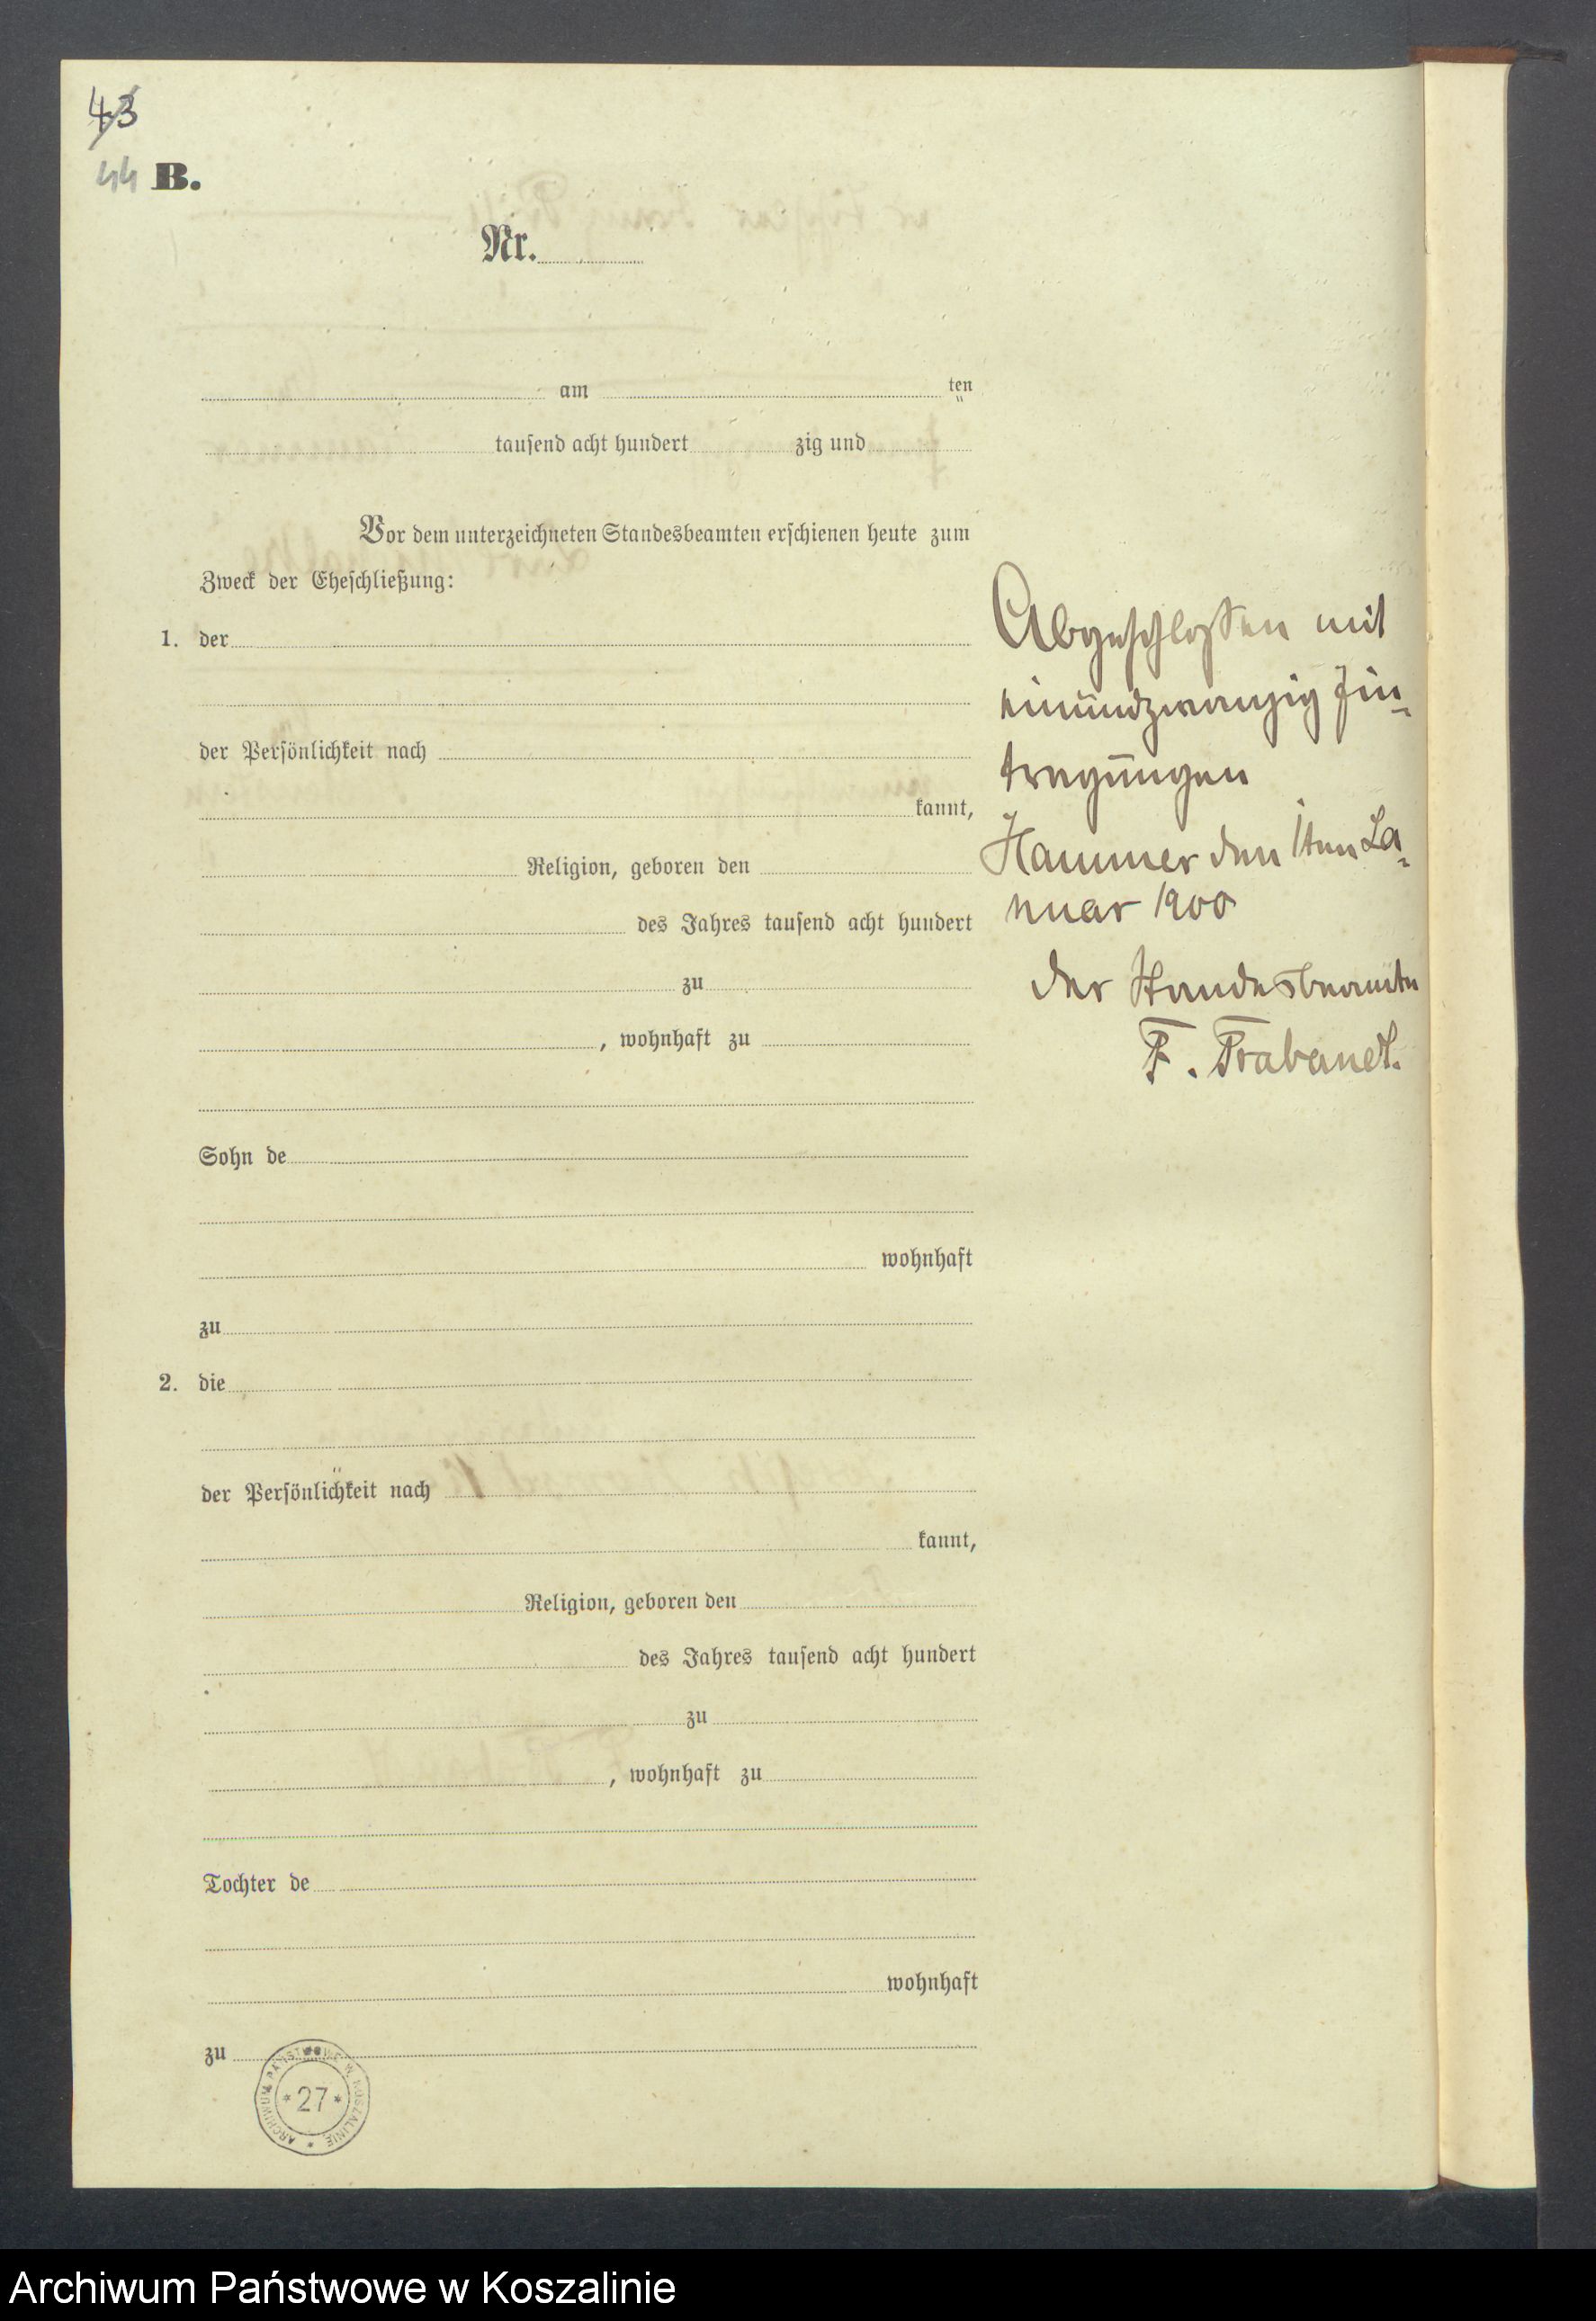 43
44 B.
Nr.
am ten
tausend acht hundert zig und
Vor dem unterzeichneten Standesbeamten erschienen heute zum
Zweck der Eheschließung:
1. der
der Persönlichkeit nach
kannt,
Religion, geboren den
des Jahres tausend acht hundert
zu
, wohnhaft zu
Sohn de
wohnhaft
zu
2. die
der Persönlichkeit nach
kannt,
Religion, geboren den
des Jahres tausend acht hundert
zu
, wohnhaft zu
Tochter de
wohnhaft
zu
Abgeschlossen mit
einundzwanzig Ein-
tragungen
Hammer den 1ten Ja-
nuar 1900
Der Standesbeamte
F. Trabandt.
ARCHIWUM PAŃSTWOWE W KOSZALINIE * 27 *
Archiwum Państwowe w Koszalinie